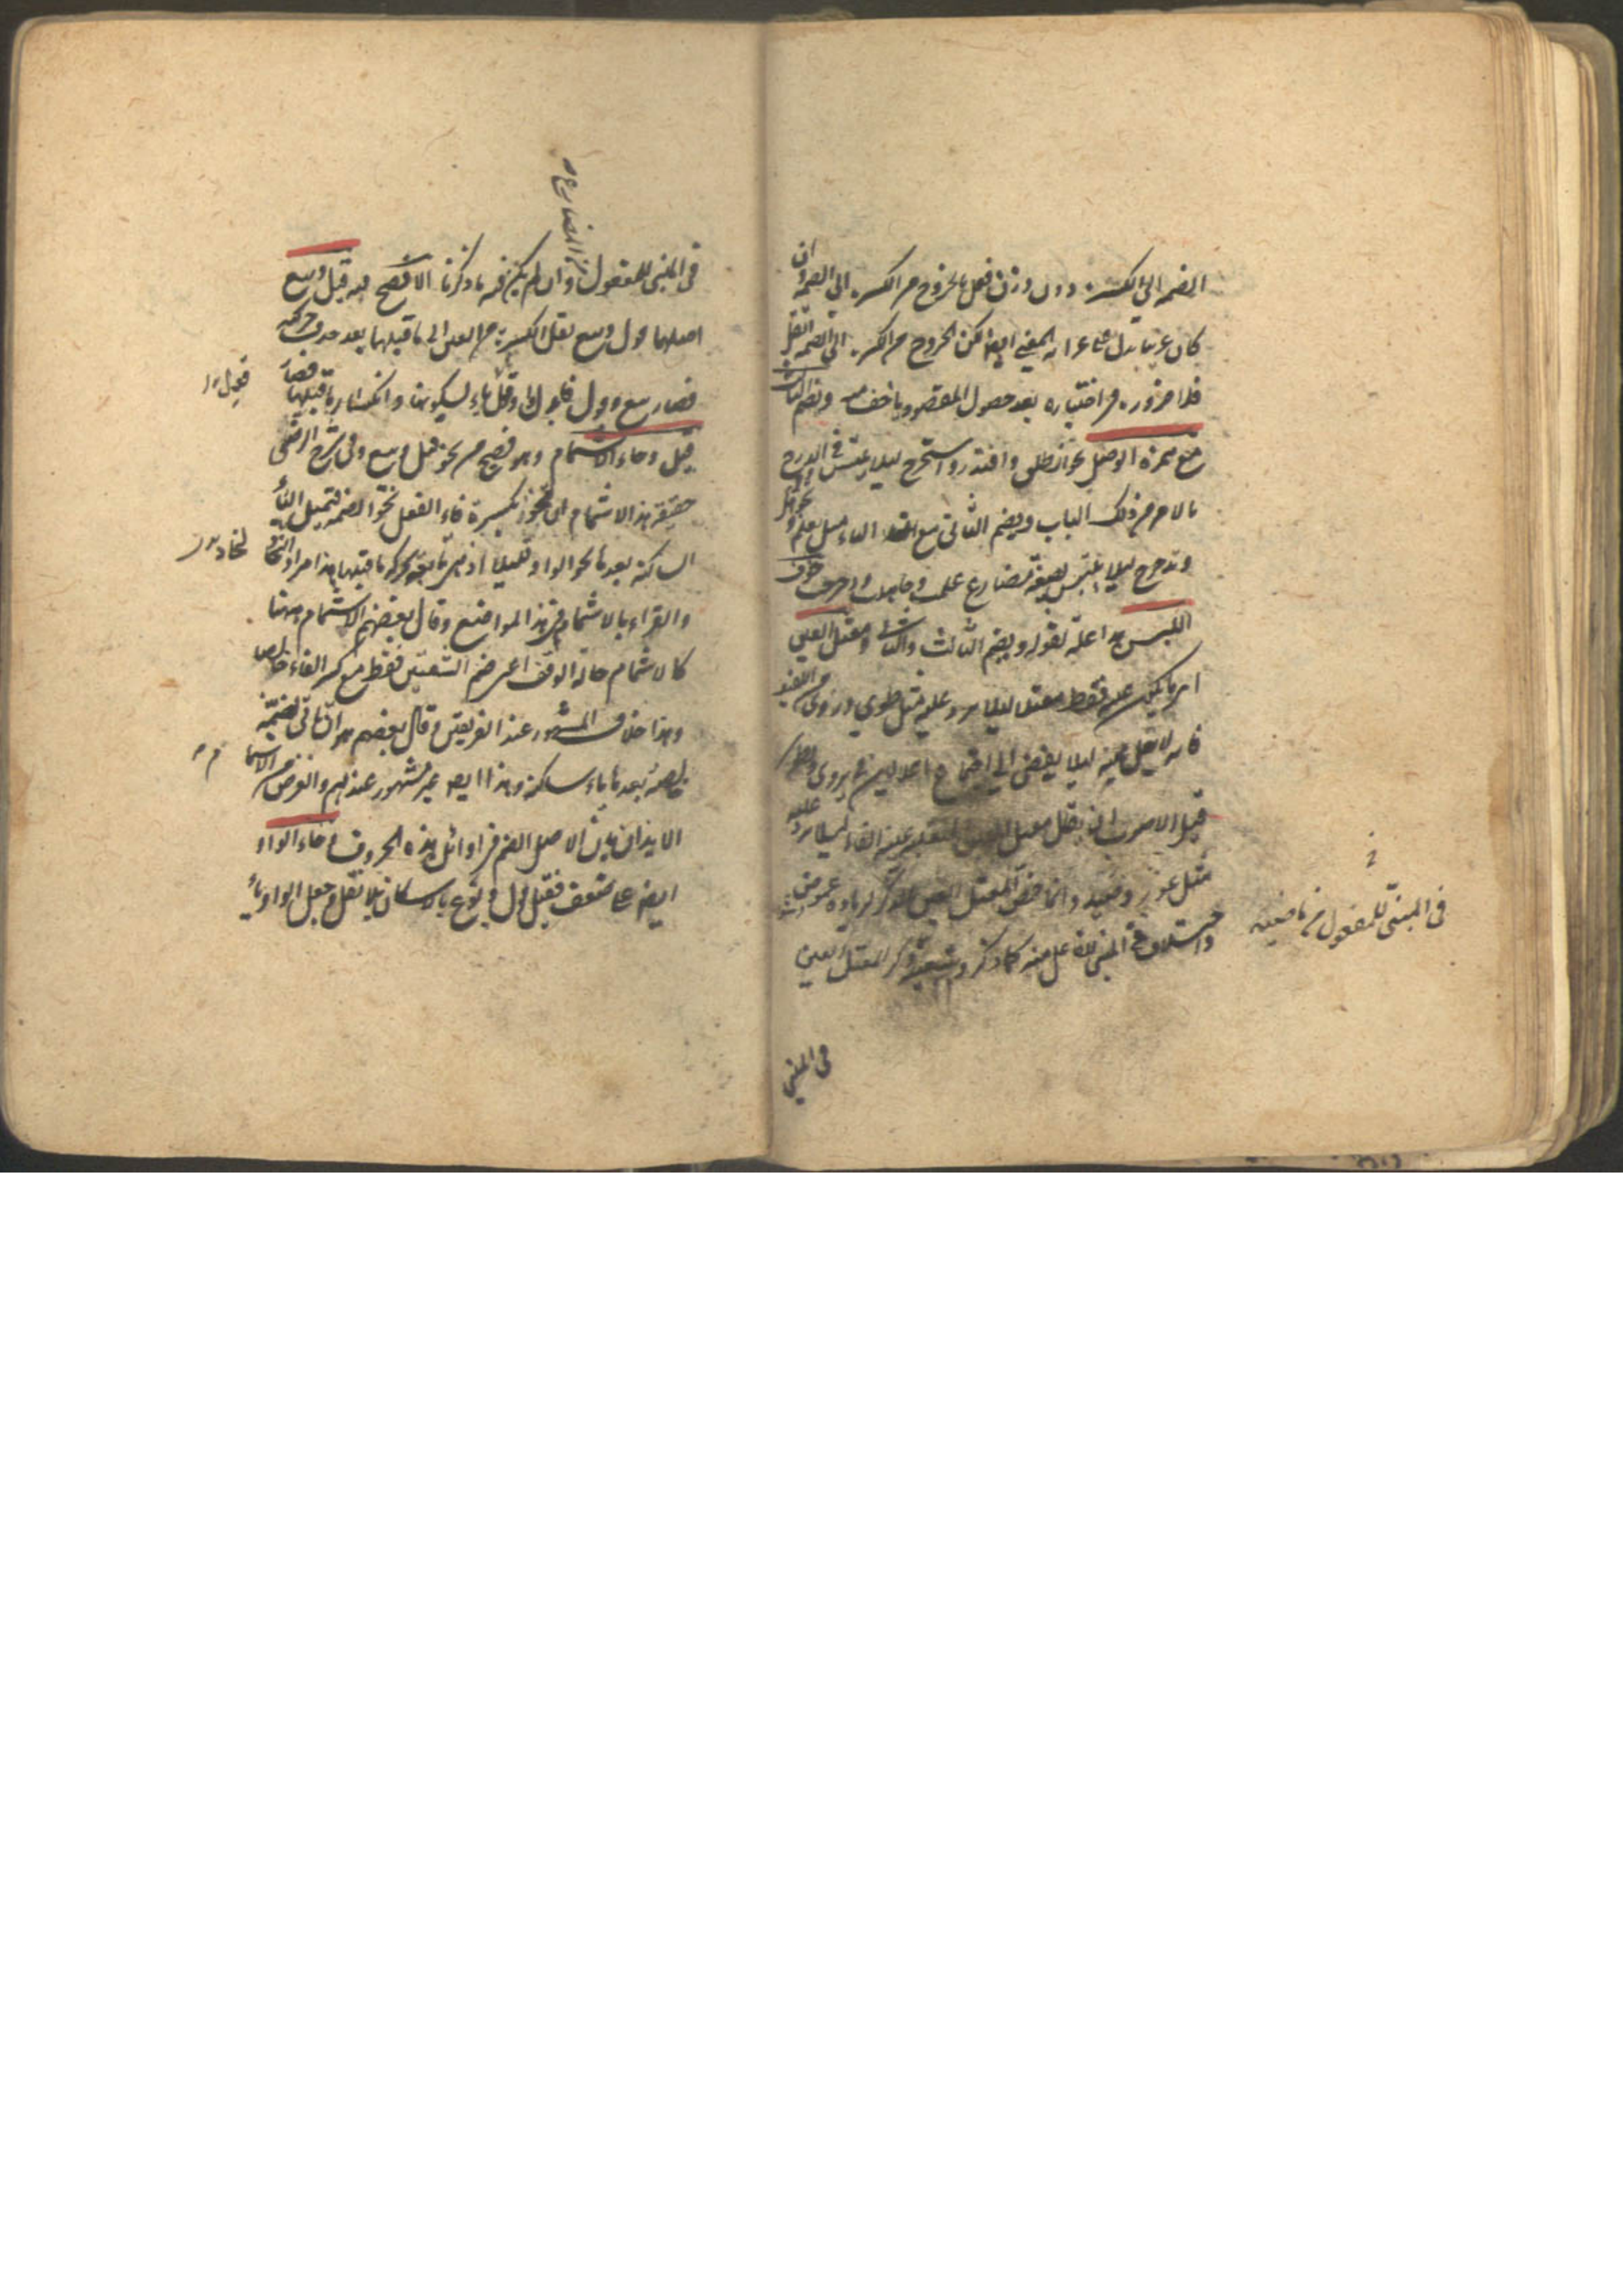 الضمة الى الكسرة دون وزن فعل بالخروج من الكسرة الى الضمة وان
كان غريبا يدل على غرابة المعنى ايضا لكن الخروج من الكسرة الى الضمة اثقل
فلا ضرورة في اختياره بعد حصول المقصود باخف منه ويضم الثالث
مع همزة الوصل نحو انطلق واقتدر واستخرج لئلا يلتبس في الدرج
بالامر من ذلك الباب ويضم الثاني مع التاء مثل تعلم وتجوهل
وتدحرج لئلا يلتبس بصيغة مضارع علمت وجاهلت ودحرجت خوف
اللبس هذا علة لقوله ويضم الثالث والثاني ومعتل العين
اي ما يكون عينه فقط معتلا لئلا يرد عليه مثل طوي وروي من اللفيف
فانه لا يعل عينه لئلا يفضي الى اجتماع اعلالين في يروى ويطوى
قيل الاصوب ان يقال معتل العين المنقلبة عينه الفا لئلا يرد عليه
مثل عور وصيد وانما خص المعتل العين بالذكر لزيادة غموض
واختلاف في المبني للفاعل منه كما ذكر وشبعية ذكر المعتل العين
في المبنى للمفعول من ماضيه
في المبني
في المبني للمفعول من المضارع وان لم يكن فيه ما ذكرنا الافصح فيه قيل وبيع
اصلهما قول وبيع نقل الكسرة من العين الى ما قبلها بعد حذف حركته
فصار بيع وقول فابدل واو قول ياء لسكونها وانكسار ما قبلها فصار
قيل وجاء الاشمام وهو فصيح في نحو قيل وبيع وفي شرح الرضي
حقيقة هذا الاشمام ان تنحو بكسرة فاء الفعل نحو الضمة فتميل الياء
الساكنة بعدها نحو الواو قليلا اذ هي تابعة لحركة ما قبلها هذا مراد النحاة
والقراء بالاشمام في هذا المواضع وقال بعضهم الاشمام ههنا
كالاشمام حالة الوقف اعني ضم الشفتين فقط مع كسر الفاء خالصا
وهذا خلاف المشهور عند الفريقين وقال بعضهم هو ان تاتي بضمة
خالصة بعدها ياء ساكنة وهذا ايضا غير مشهور عندهم والغرض من الاشمام
الايذان بان الاصل الضم في اوائل هذه الحروف وجاء الواو
ايضا على ضعف فقيل قول وبوع بالاسكان بلا نقل وجعل الواو ياء